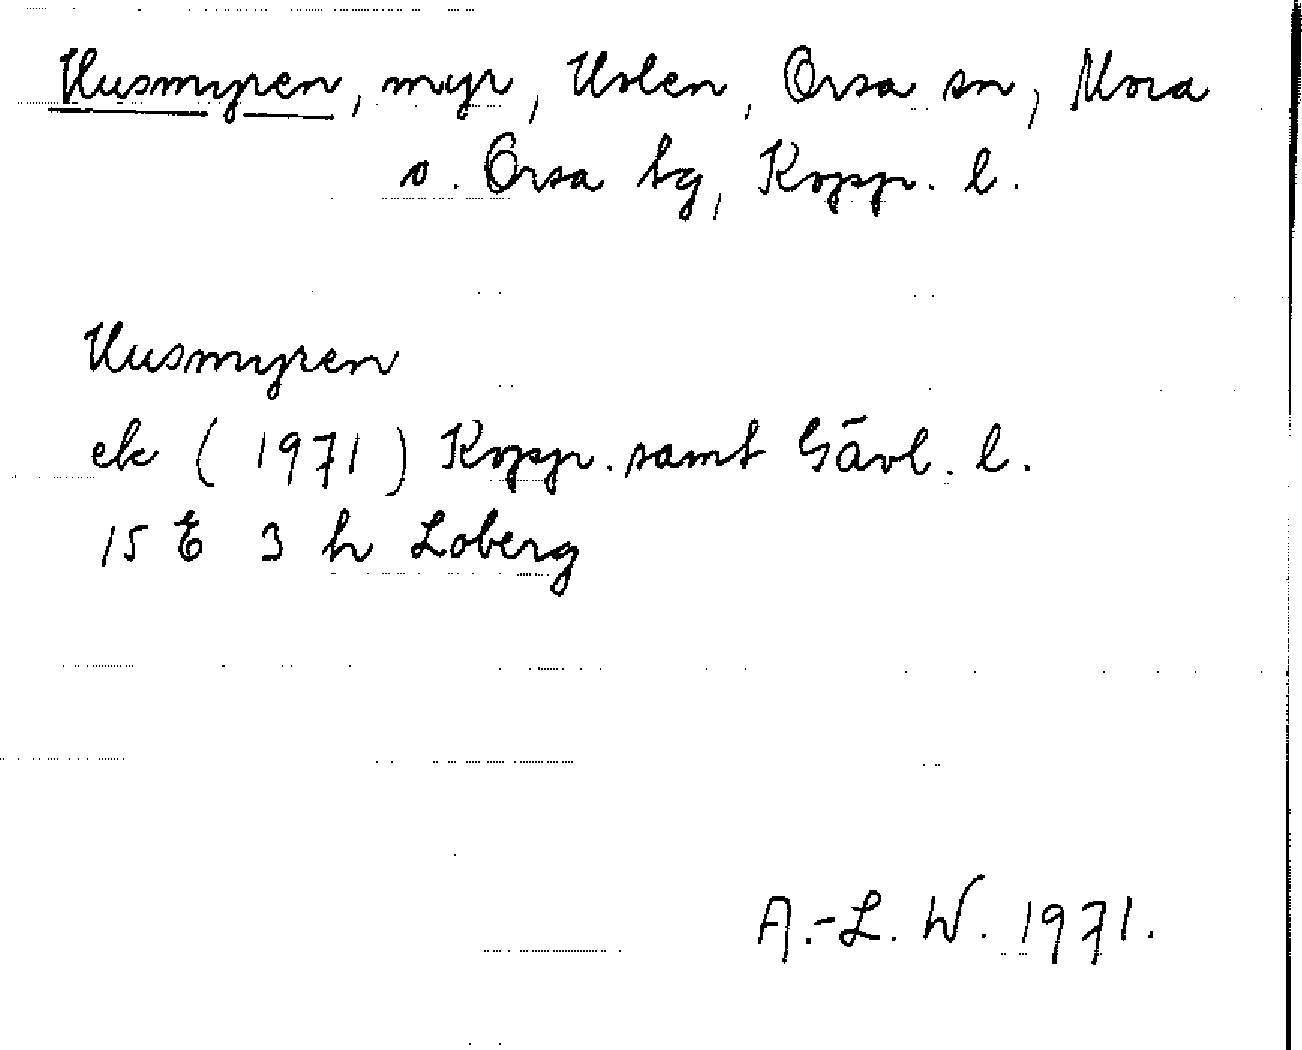 Husmyren, myr, Holen, Orsa sn, Mora
o. Orsa tg, Kopp. l.
Husmyren
ek (1971) Kopp. samt Gävl. l.
15 E 3 h Loberg
A.-L. W. 1971.